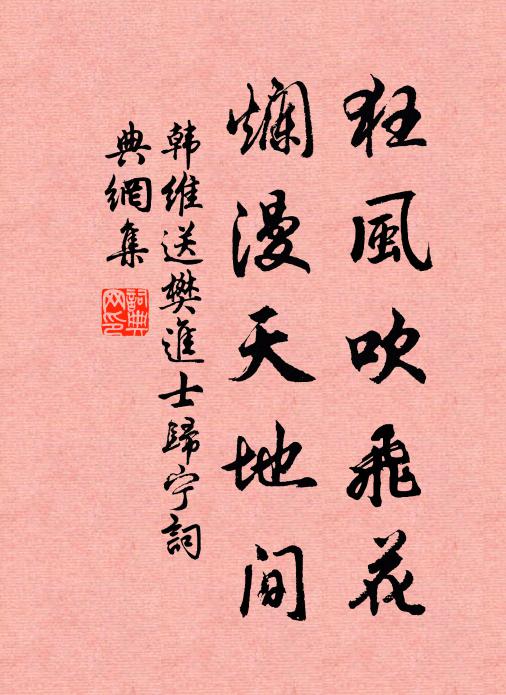 狂風吹飛花
爛漫天地间
韩維送樊進士歸宁詞
典網集
詞典
网印